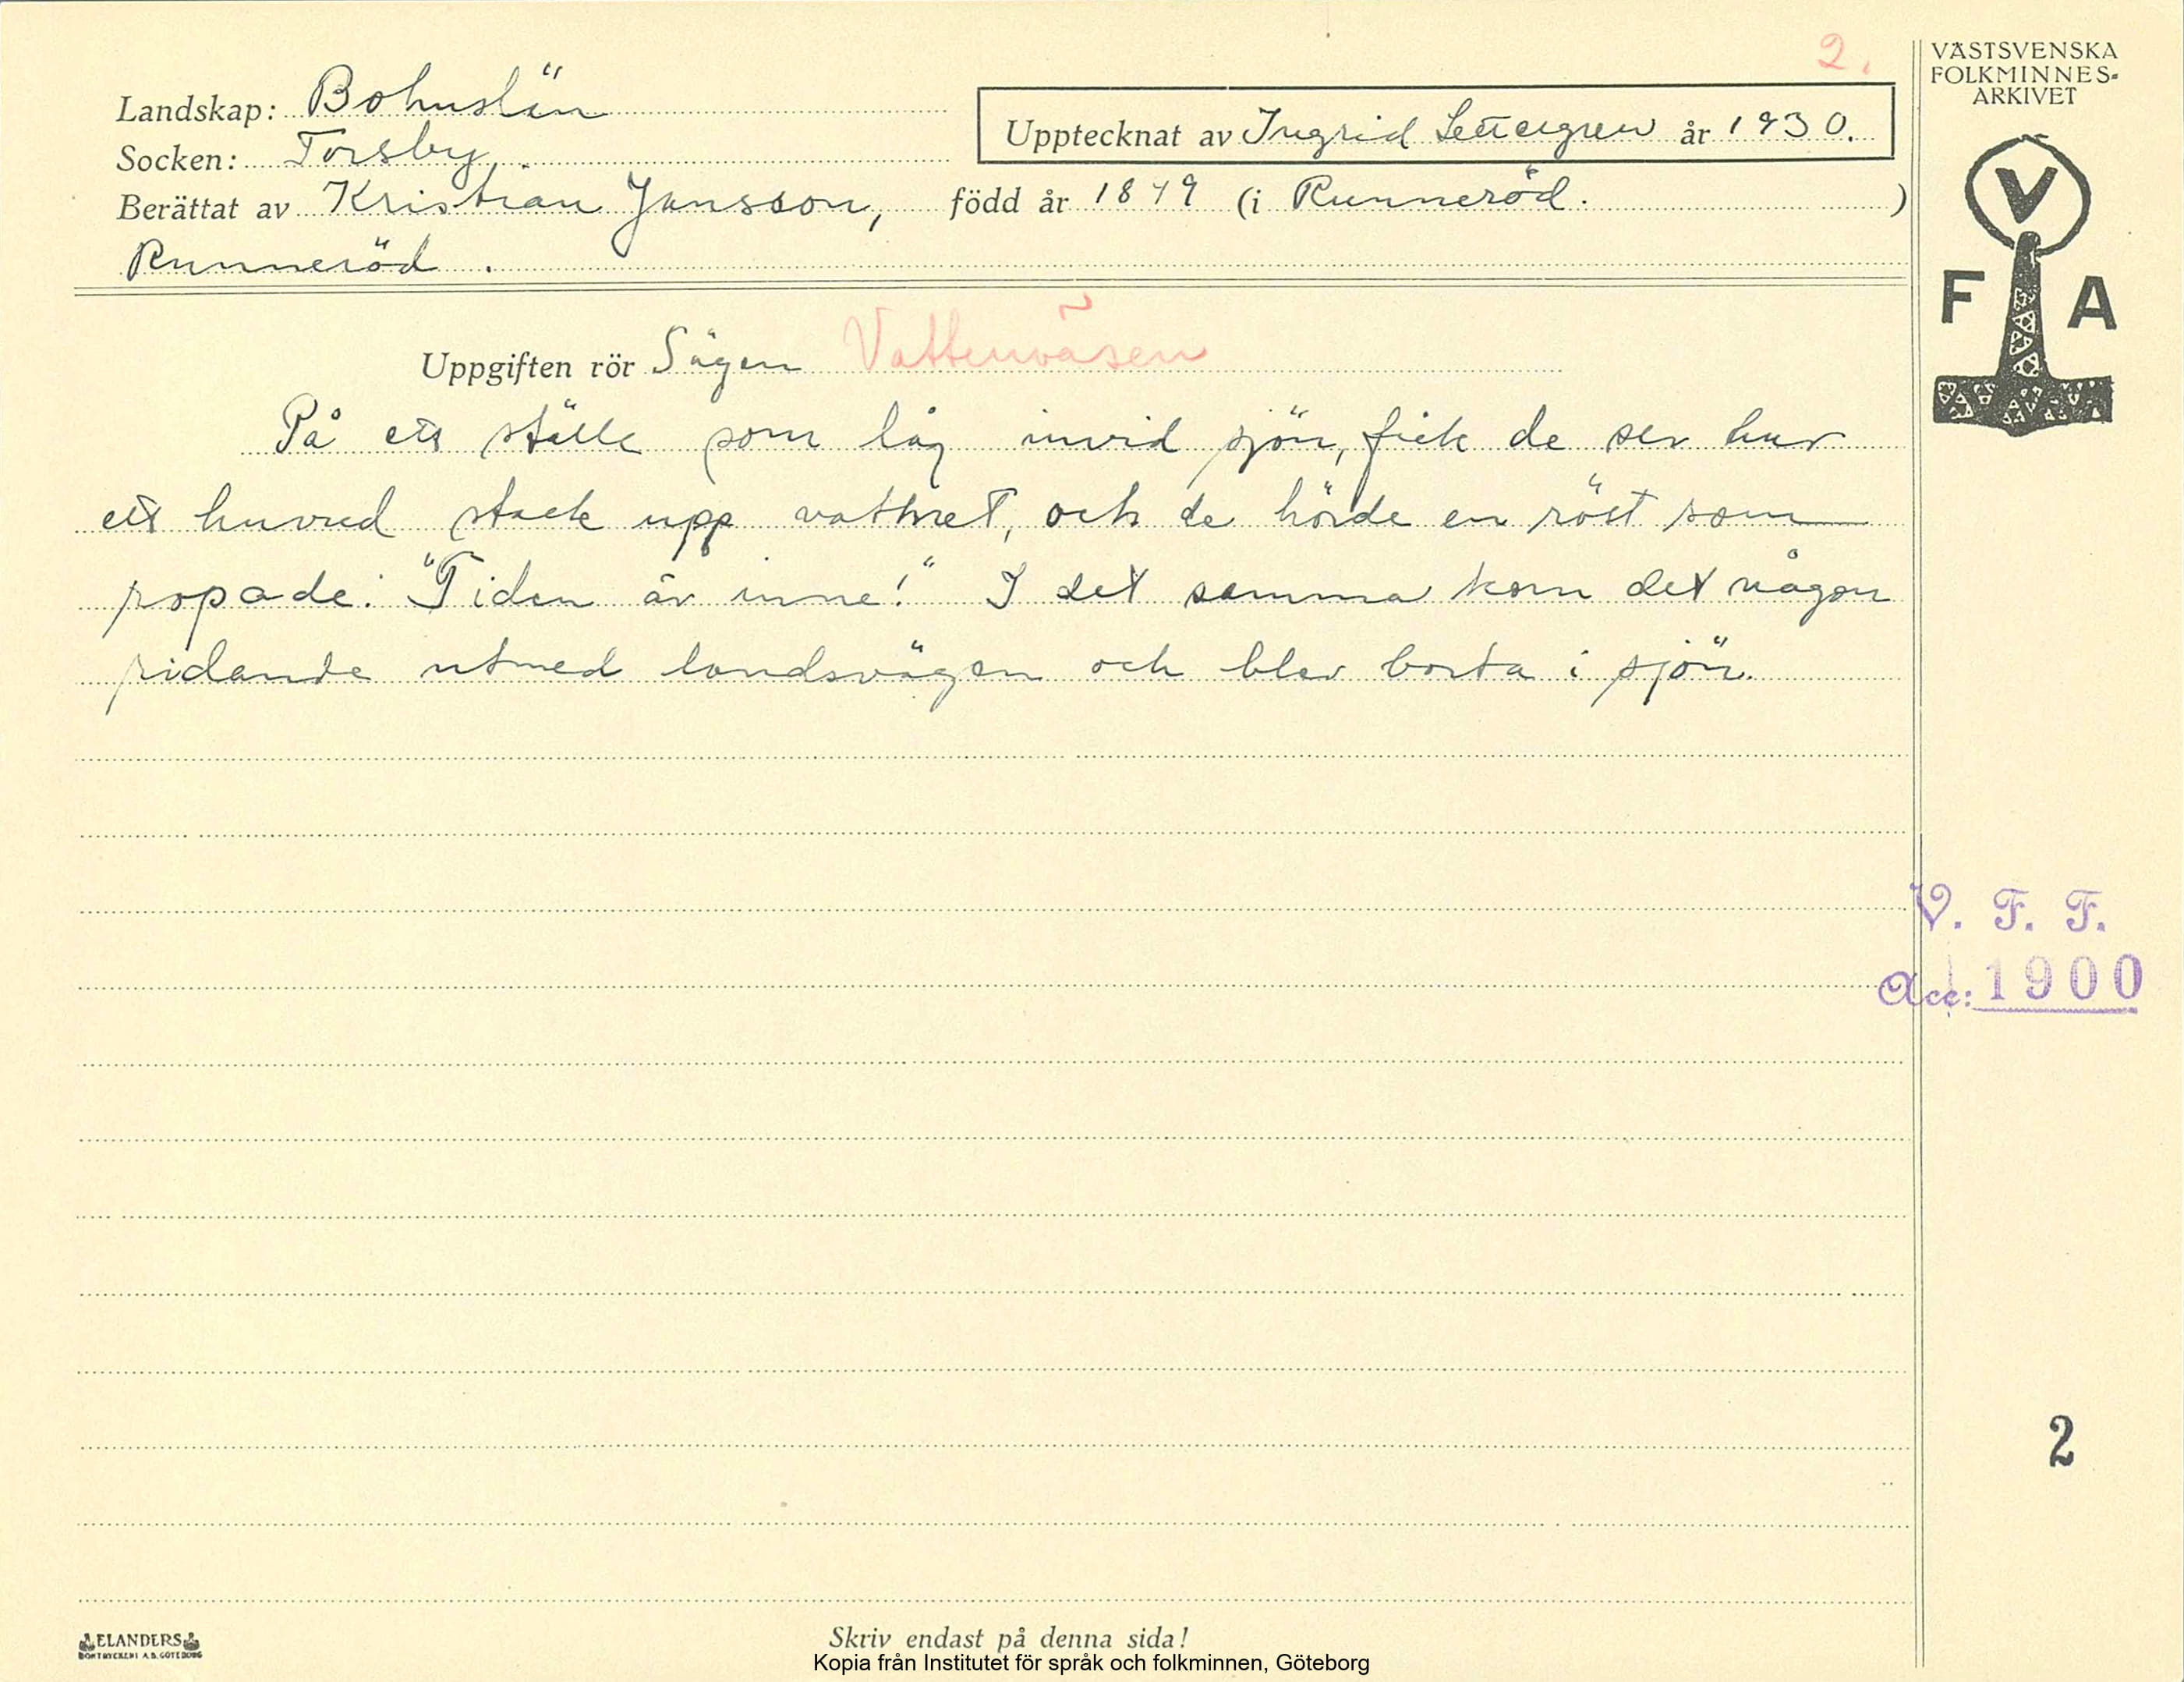 2.
VÄSTSVENSKA
FOLKMINNES-
ARKIVET
Landskap: Bohuslän
Upptecknat av Ingrid år 1930.
Socken: Torsby.
Berättat av Kristian Jansson, född år 1879 (i Runneröd. )
Runneröd.
V
F A
Uppgiften rör Sägen Vattenväsen
På ett ställe som låg invid sjön, fick de se hur
ett huvud stack upp vattnet, och de hörde en röst som
ropade: "Tiden är inne!" I det samma kom det någon
ridande utmed landsvägen och blev borta i sjön.
V. F. F.
Acc: 1900
2
ELANDERS
BOKTRYCKERI A.B. GÖTEBORG
Skriv endast på denna sida!
Kopia från Institutet för språk och folkminnen, Göteborg